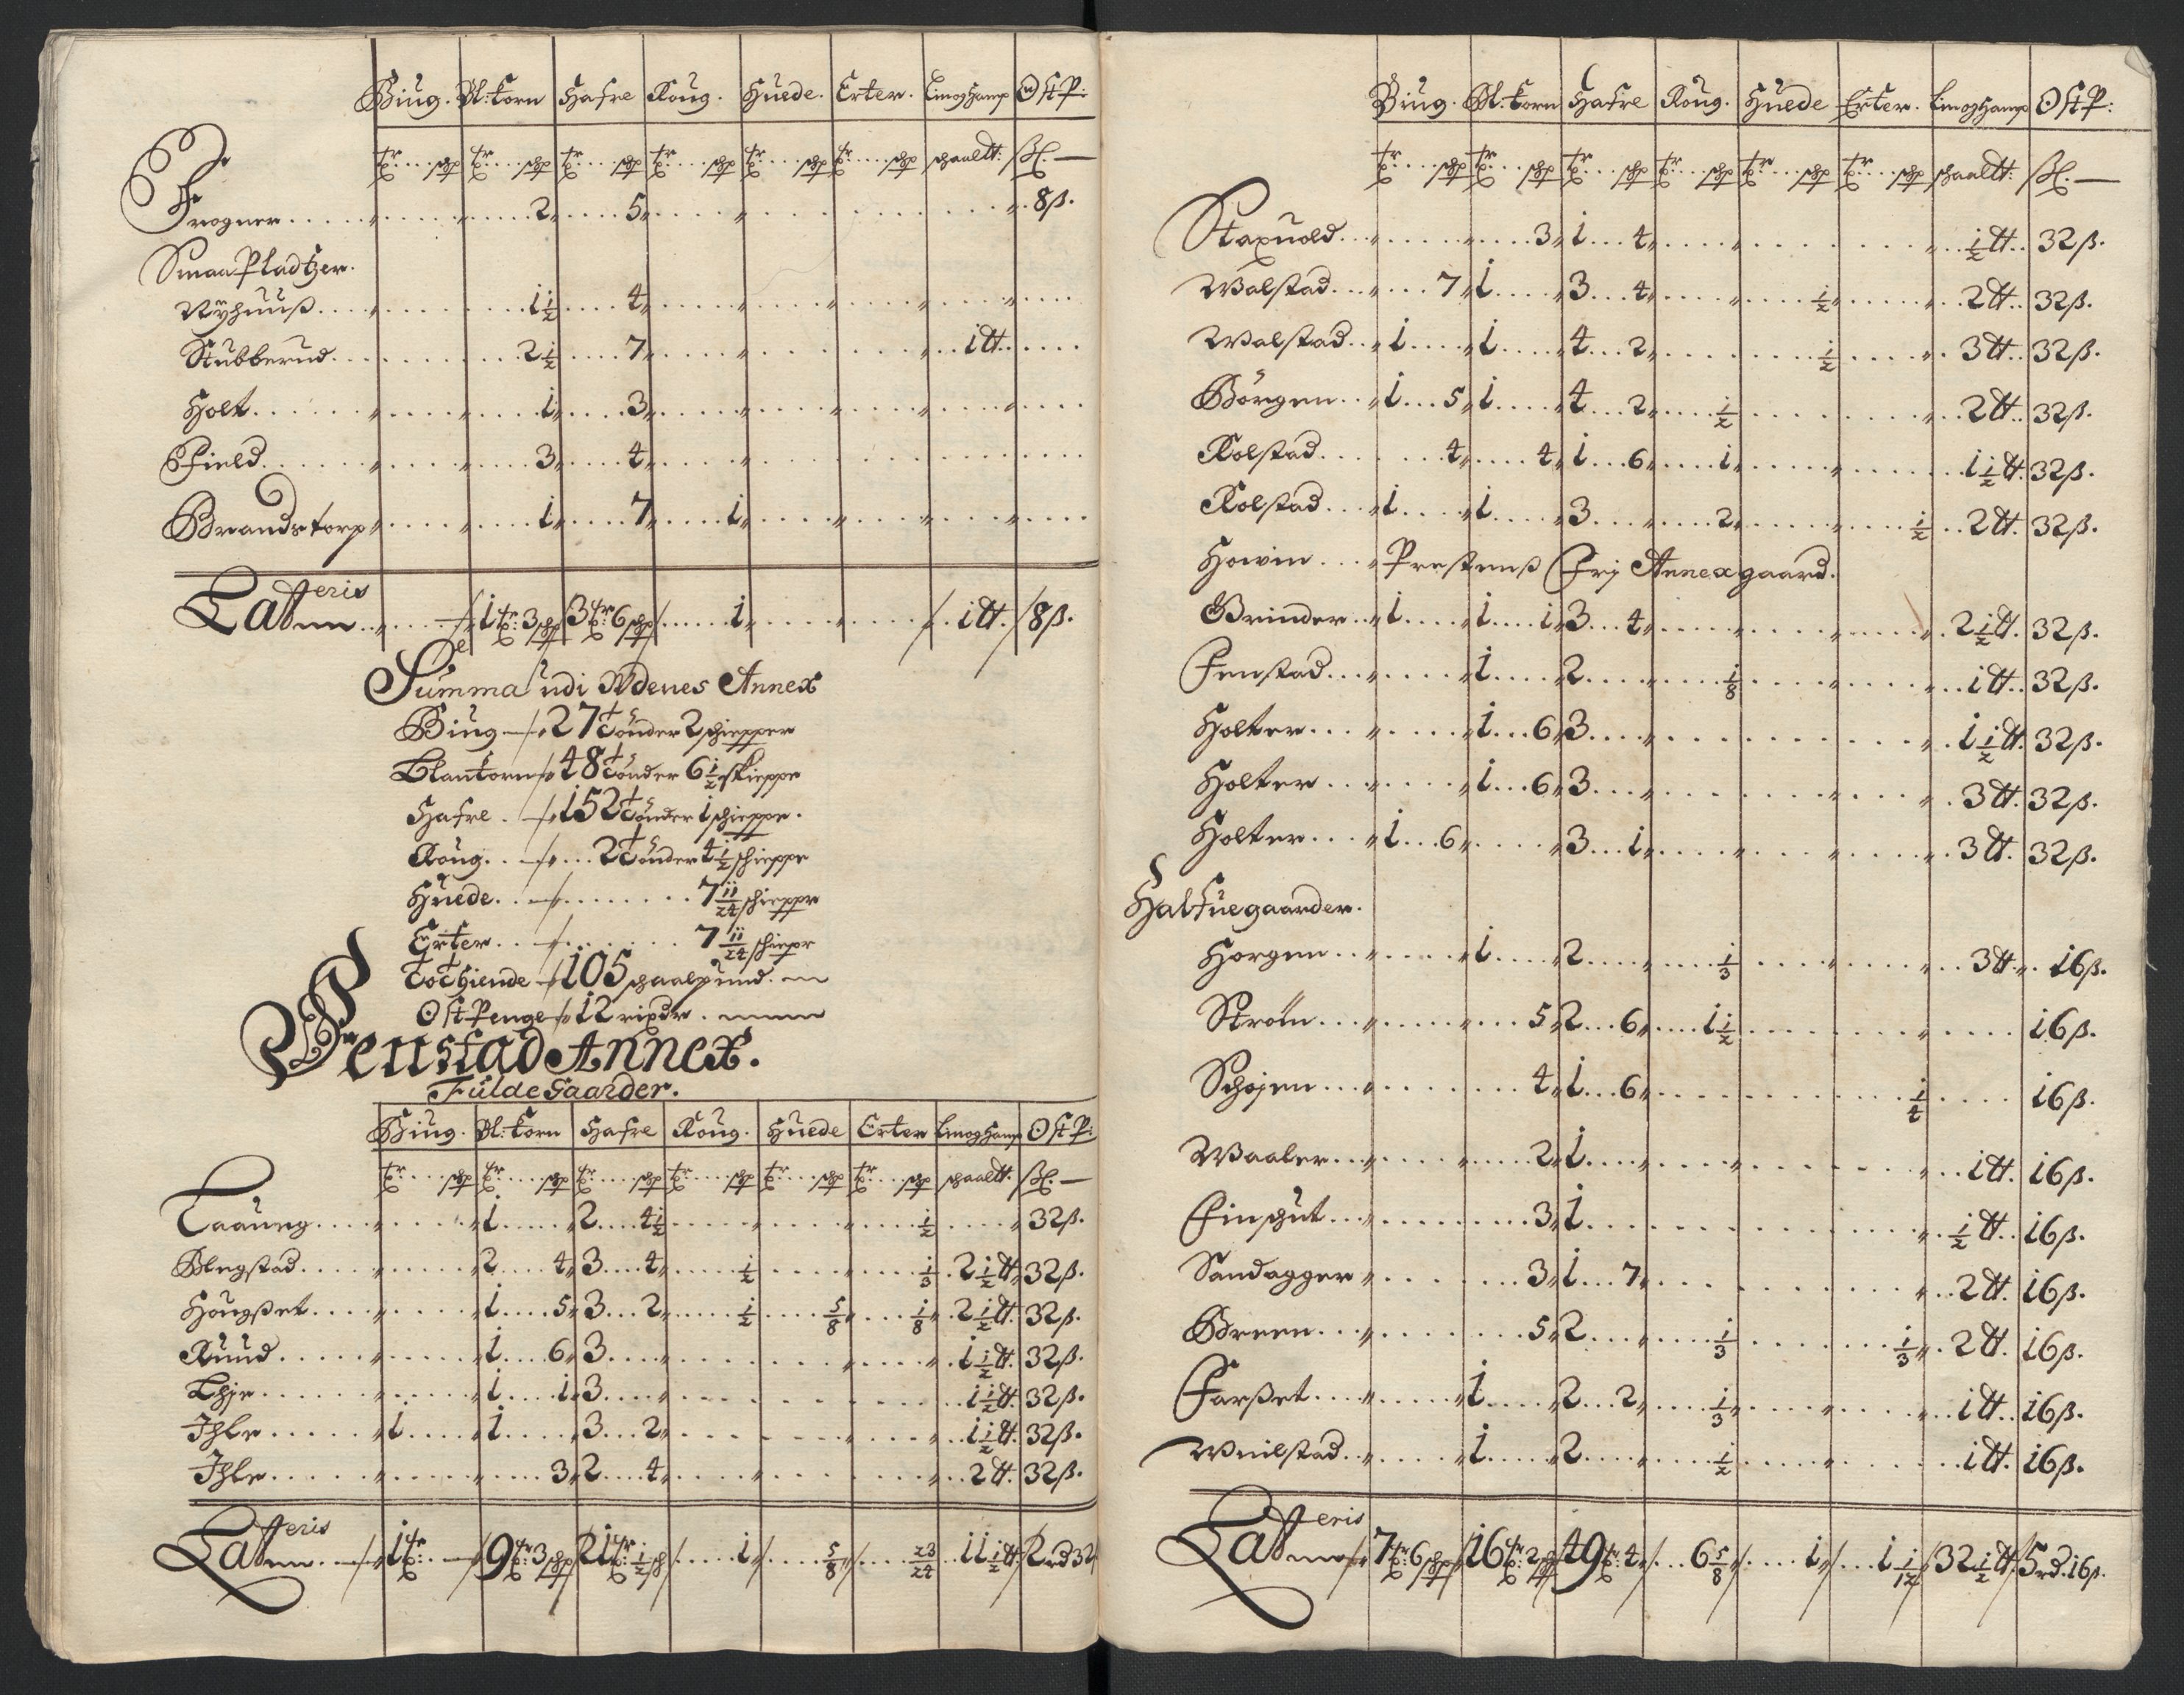 Biug. Bl: korn Hafre Roug. Huede. Erter. Linog Hamp OstP:
tr:....schp tr:....schp tr:....schp tr:....schp tr:....schp tr:....schp schaallt:
Frogner.....2.....5.....8ß.
Smaa Pladtzer.
Nÿhuuß.....1½.....4
Stubberud.....2½.....7.....1 tt.
Holt.....1.....3
Field.....3.....4
Brandstorp.....1.....7.....1
Latteris.....1 tr: 3 schp 3 tr: 6 schp.....1.....1 tt. 8ß.
Summa udi Udenes Annex
Biug 27 tönder 2 schiepper
Blankorn 48 tönder 6½ skieppe
Hafre. 152 tönder 1 schieppe.
Roug... 2 tönder 4½ schieppe
Huede........ 7 11/24 schieppe
Erter........ 7 11/24 schiepr
Tothiende 105 schaalpund.
OstPenge 12 rixdr.
Fenstad Annex.
Fulde Gaarder.
Biug. Bl: korn Hafre Roug. Huede Erter Linog Hamp OstP:
tr:....schp tr:....schp tr:....schp tr:....schp tr:....schp tr:....schp schaallt:
Taaung.....1.....2....4½.....½.....32ß.
Blegstad.....2....4 3....4.....½.....⅓. 2½ tt. 32ß.
Hougßet.....1....5 3...2.....½.....⅝.....⅛. 2½ tt. 32ß.
Ruud.....1....6 3.....1½ tt. 32ß.
Lhje.....1....1 3.....1½ tt. 32ß.
Ihle.....1.....1.....3...2.....1½ tt. 32ß.
Ihle.....3 2....4.....2 tt. 32ß.
Latteris.....1 tr:.....9 tr: 3 schp 21 tr: ½ sch.....1.....⅝.....23/24 11½ tt. 2 rd 32
Biug. Bl: korn Hafre Roug. Huede Erter. Linog Hamp OstP:
tr:....schp tr:....schp tr:....schp tr:....schp tr:....schp tr:....schp schaallt:
Stapuold.....3 1...4.....½ tt.. 32ß.
Walstad.....7 1.....3...4.....½.....2 tt.. 32ß.
Walstad...1.....1.....4...2.....½.....3 tt.. 32ß.
Börgen...1...5 1.....4...2.....½.....2 tt.. 32ß.
Kolstad.....4.....4 1...6.....1.....1½ tt. 32ß.
Kolstad...1.....1.....3.....2.....½..2 tt. 32ß.
Howin.... Prestenß Frj Annexgaard.
Grinder...1.....1....1 3...4.....2½ tt. 32ß.
Fenstad.....1.....2.....⅛.....1 tt.. 32ß.
Holter.....1...6 3.....1½ tt. 32ß.
Holter.....1...6 3.....3 tt. 32ß.
Holter...1...6.....3...1.....3 tt. 32ß.
Halfuegaarder.
Horgen.....1.....2.....⅓.....3 tt.. 16ß.
Ström.....5 2...6....1½.....16ß.
Schojen.....4 1...6.....¼.....16ß.
Waaler.....2 1.....1 tt. 16ß.
Finschut.....3 1.....½ tt.. 16ß.
Sandagger.....3 1...7.....2 tt. 16ß.
Breen.....5 2.....⅓.....⅓. 2 tt. 16ß.
Farßet.....1.....2...2.....⅓.....1 tt.. 16ß.
Wuilstad.....1.....2.....½.....1 tt. 16ß.
Latteris 7 tr: 6 schp 16 tr: 2 sch 49 tr: 4...6⅝.....1....1 1/12 32½ tt. 5 rd. 16ß.